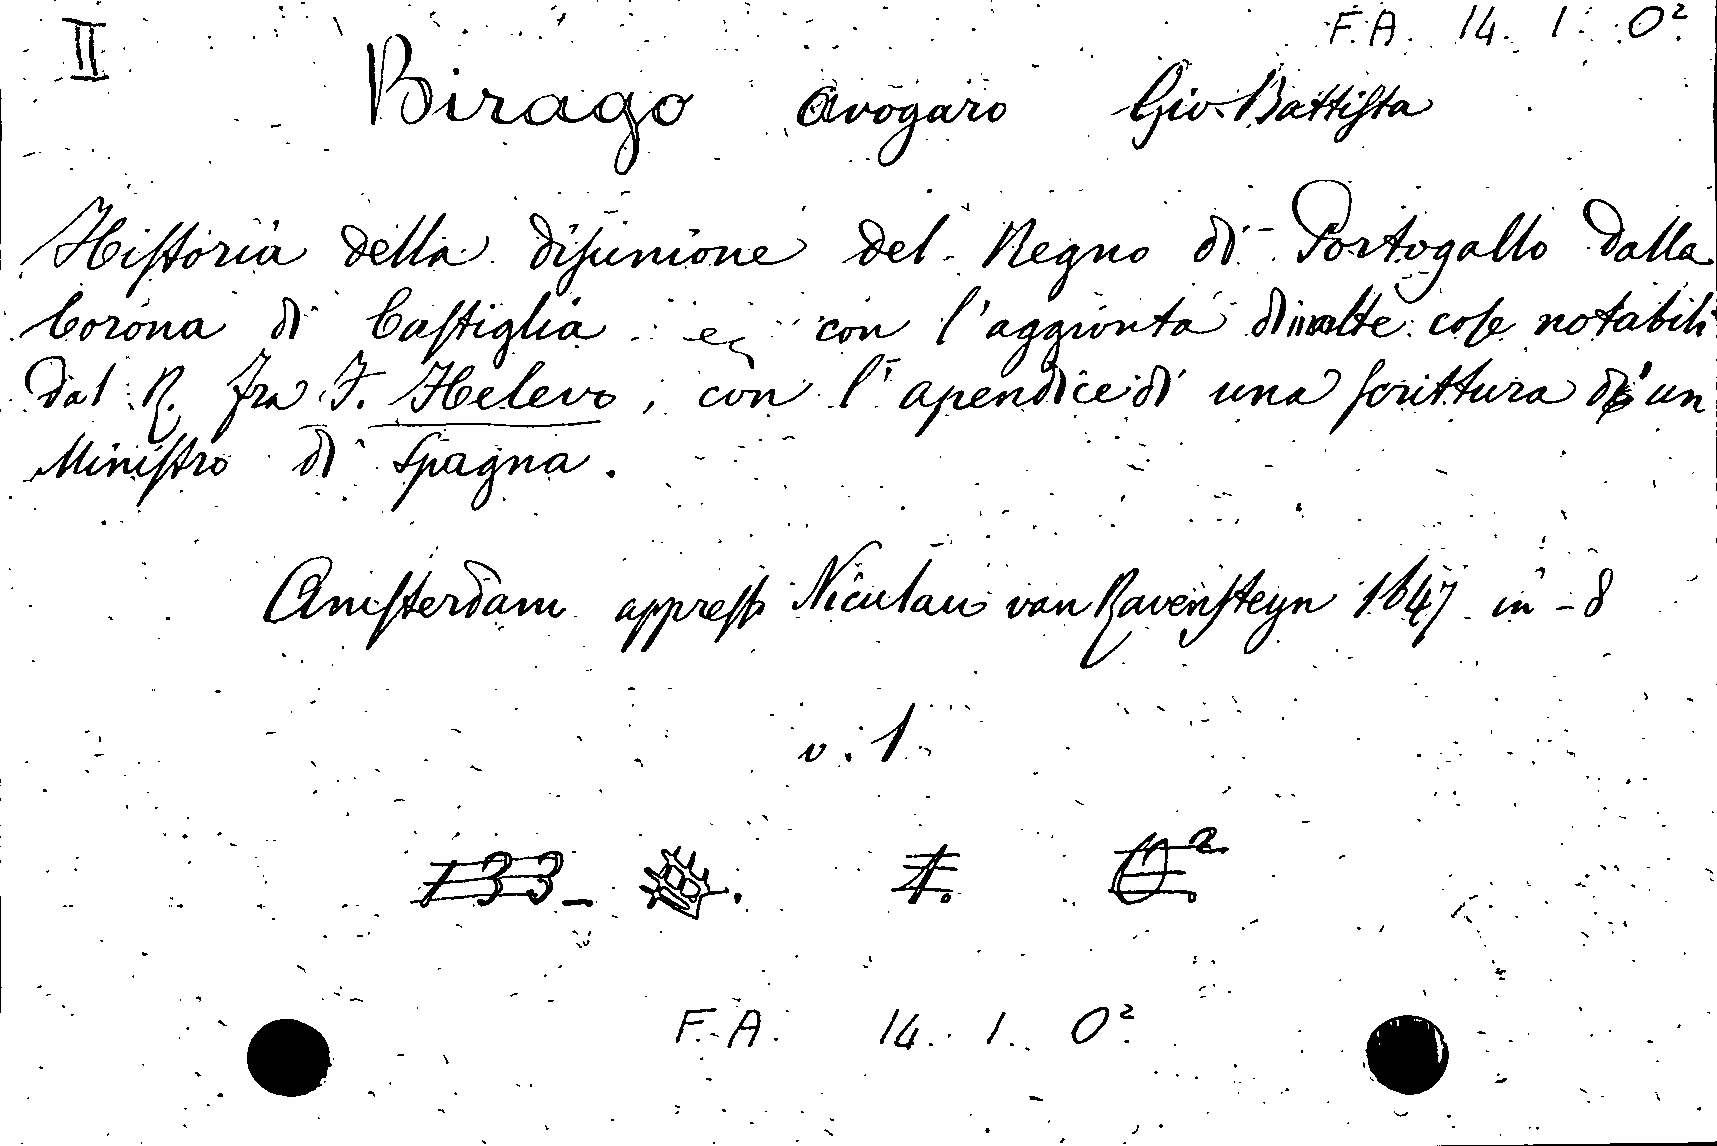 II
F. A. 14. 1. O²
Birago Avogaro Gio. Battista
Historia della disunione del Regno di Portogallo dalla
Corona di Castiglia e con l'aggionta di molte cose notabili
dal R. fra F. Helevo, con l'apendice di una scrittura di un
Ministro di Spagna.
Amsterdam appresso Niculau van Ravensteyn 1647 in-8
v. 1
133 - 1. O²
F. A. 14. 1. O²